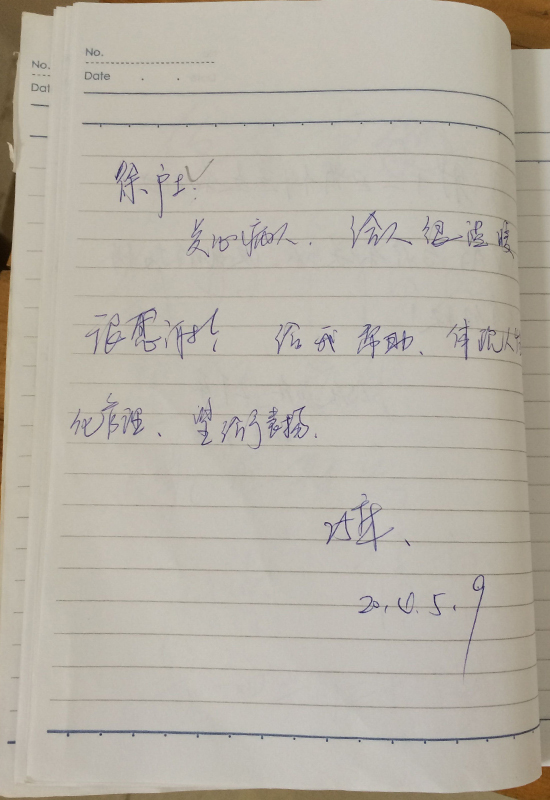 No.
Date . .
No.
Dat
徐护士:
关心病人. 给人很温暖
很感谢! 给我帮助、体现人性
化管理、望给予表扬.
25床、
20.4.5.9